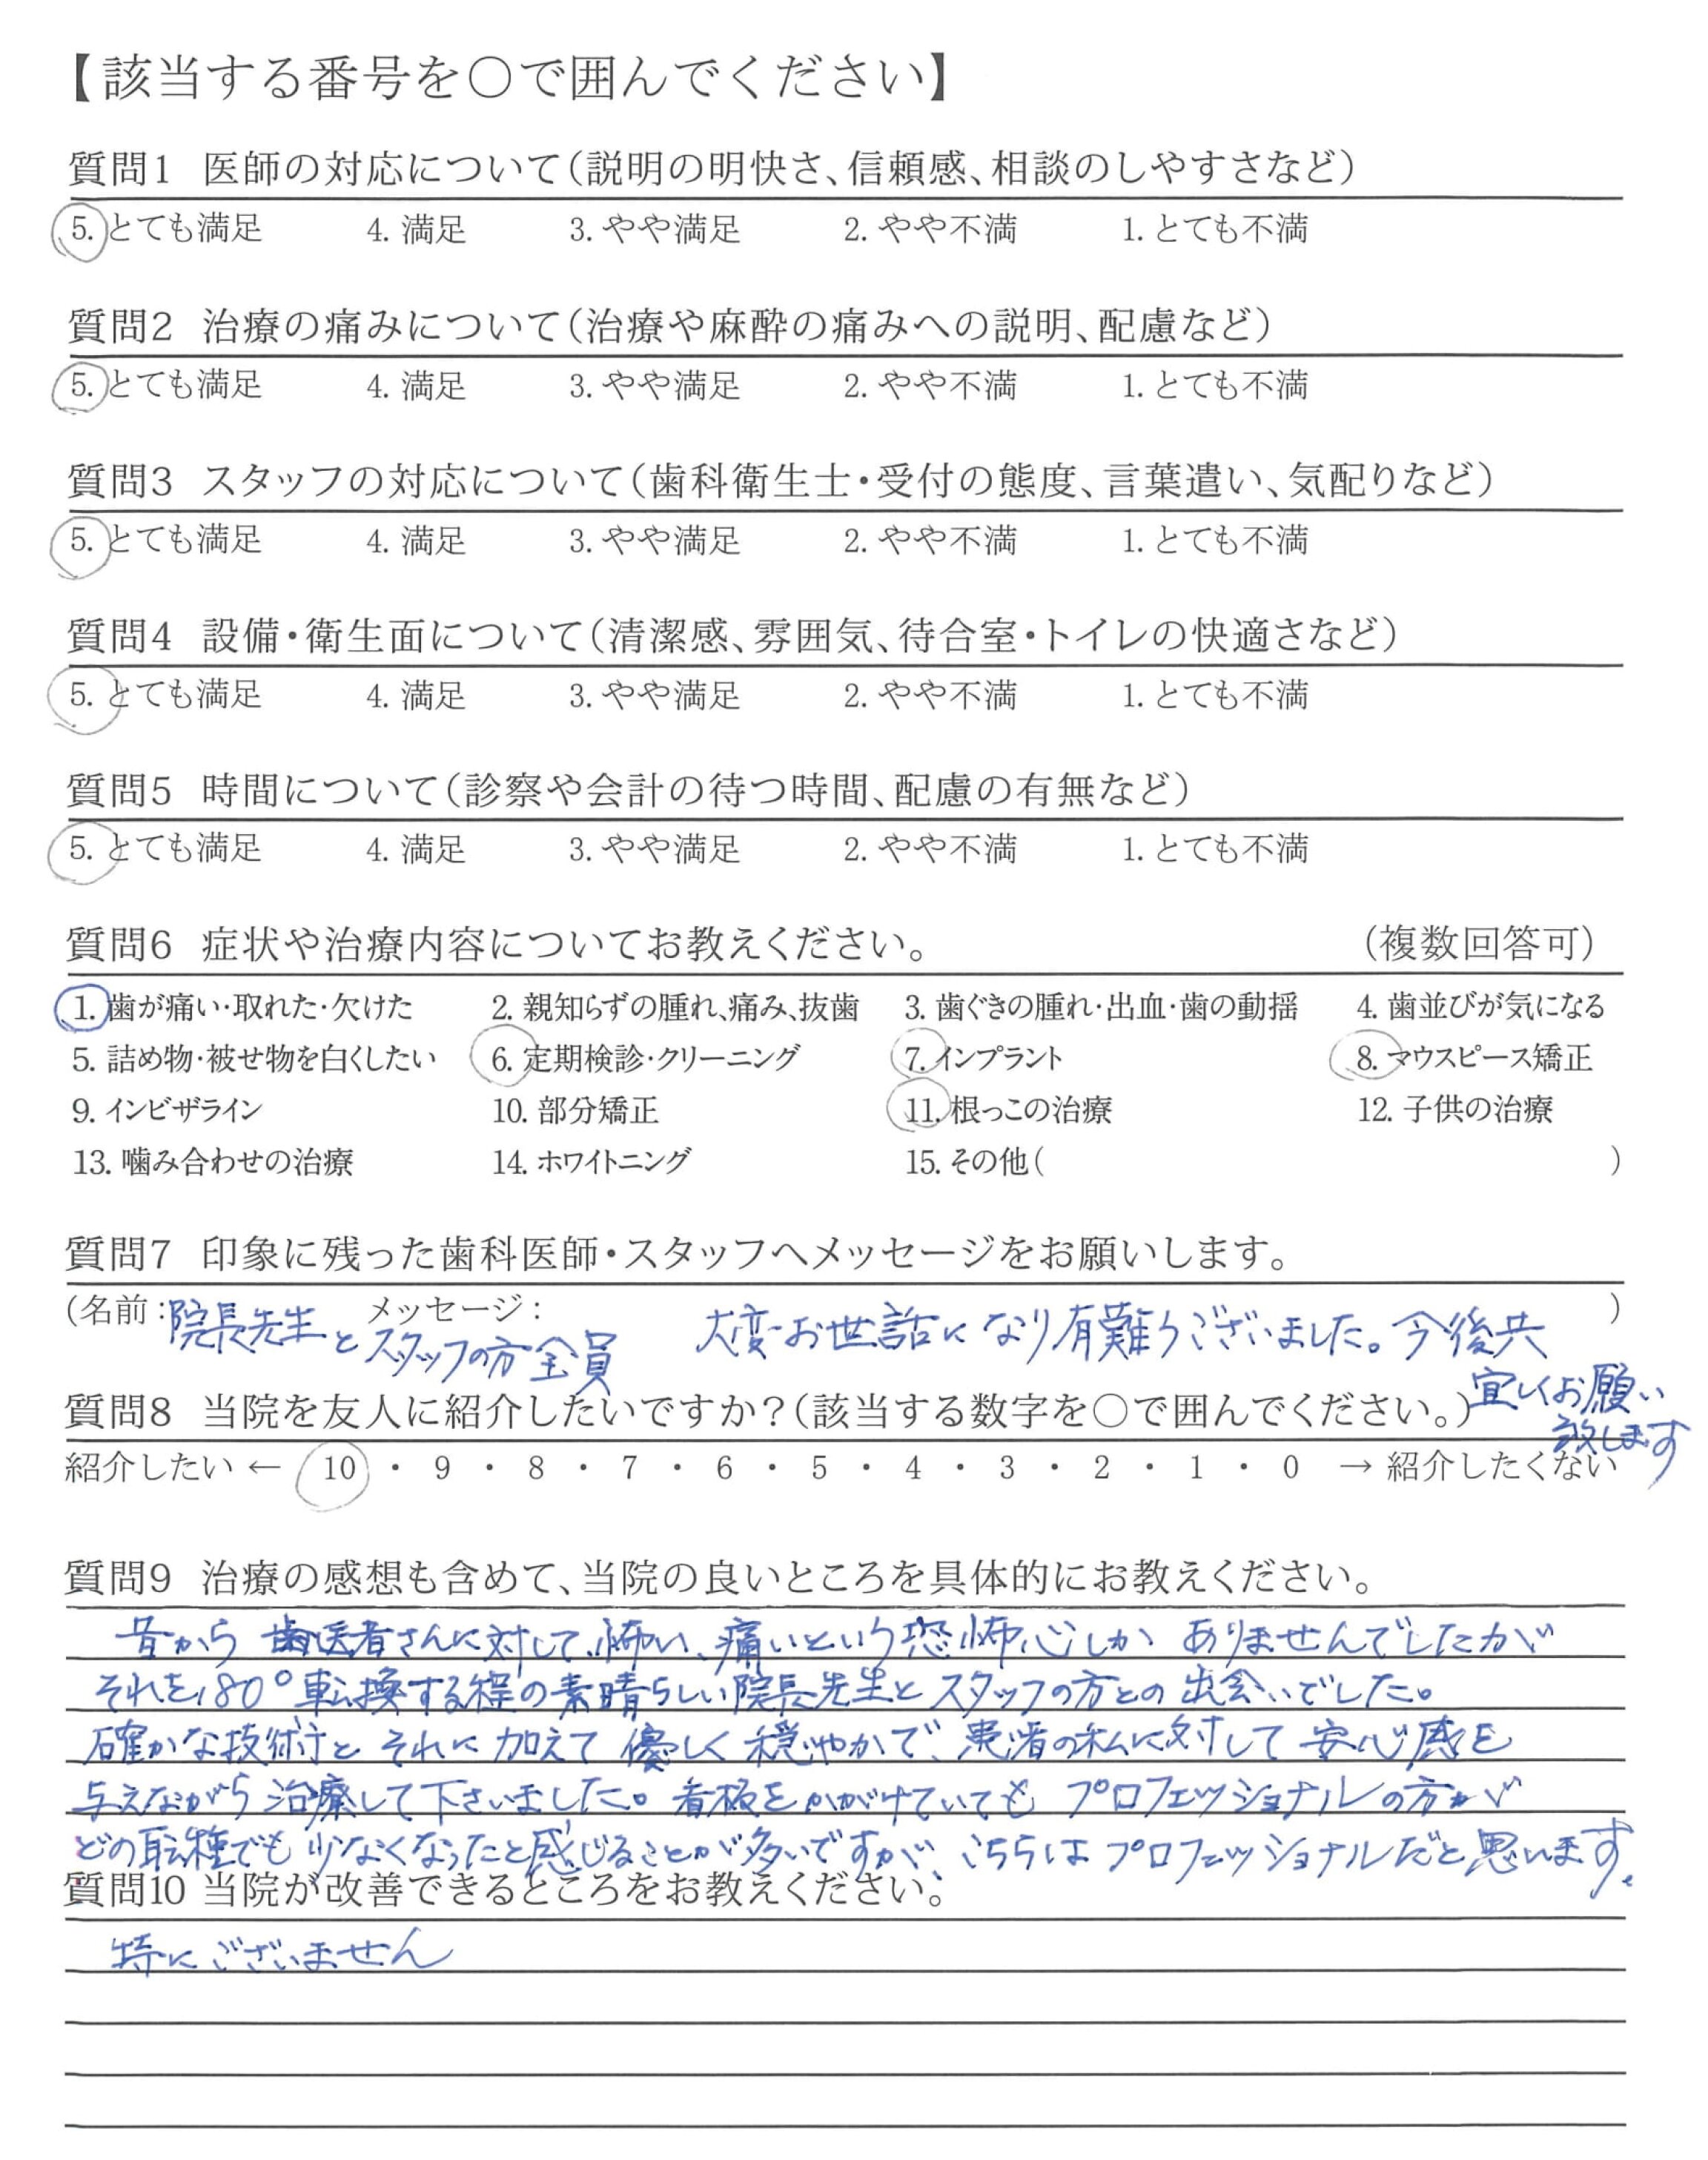 【該当する番号を○で囲んでください】
質問1 医師の対応について(説明の明快さ、信頼感、相談のしやすさなど)
5. とても満足 4. 満足 3. やや満足 2. やや不満 1. とても不満
質問2 治療の痛みについて(治療や麻酔の痛みへの説明、配慮など)
5. とても満足 4. 満足 3. やや満足 2. やや不満 1. とても不満
質問3 スタッフの対応について(歯科衛生士・受付の態度、言葉遣い、気配りなど)
5. とても満足 4. 満足 3. やや満足 2. やや不満 1. とても不満
質問4 設備・衛生面について(清潔感、雰囲気、待合室・トイレの快適さなど)
5. とても満足 4. 満足 3. やや満足 2. やや不満 1. とても不満
質問5 時間について(診察や会計の待つ時間、配慮の有無など)
5. とても満足 4. 満足 3. やや満足 2. やや不満 1. とても不満
質問6 症状や治療内容についてお教えください。 (複数回答可)
1. 歯が痛い・取れた・欠けた 2. 親知らずの腫れ、痛み、抜歯 3. 歯ぐきの腫れ・出血・歯の動揺 4. 歯並びが気になる
5. 詰め物・被せ物を白くしたい 6. 定期検診・クリーニング 7. インプラント 8. マウスピース矯正
9. インビザライン 10. 部分矯正 11. 根っこの治療 12. 子供の治療
13. 噛み合わせの治療 14. ホワイトニング 15. その他( )
質問7 印象に残った歯科医師・スタッフへメッセージをお願いします。
(名前:院長先生とスタッフの方全員 メッセージ: 大変お世話になり有難うございました。今後共 )
宜しくお願い
致します
質問8 当院を友人に紹介したいですか?(該当する数字を○で囲んでください。)
紹介したい ← 10 ・ 9 ・ 8 ・ 7 ・ 6 ・ 5 ・ 4 ・ 3 ・ 2 ・ 1 ・ 0 → 紹介したくない
質問9 治療の感想も含めて、当院の良いところを具体的にお教えください。
昔から歯医者さんに対して、怖い、痛いという恐怖心しかありませんでしたが
それを180°転換する程の素晴らしい院長先生とスタッフの方との出会いでした。
確かな技術とそれに加えて優しく穏やかで、患者の私に対して安心感を
与えながら治療して下さいました。看板をかかげていてもプロフェッショナルの方が
どの職種でも少なくなったと感じることが多いですが、こちらはプロフェッショナルだと思います。
質問10 当院が改善できるところをお教えください。
特にございません